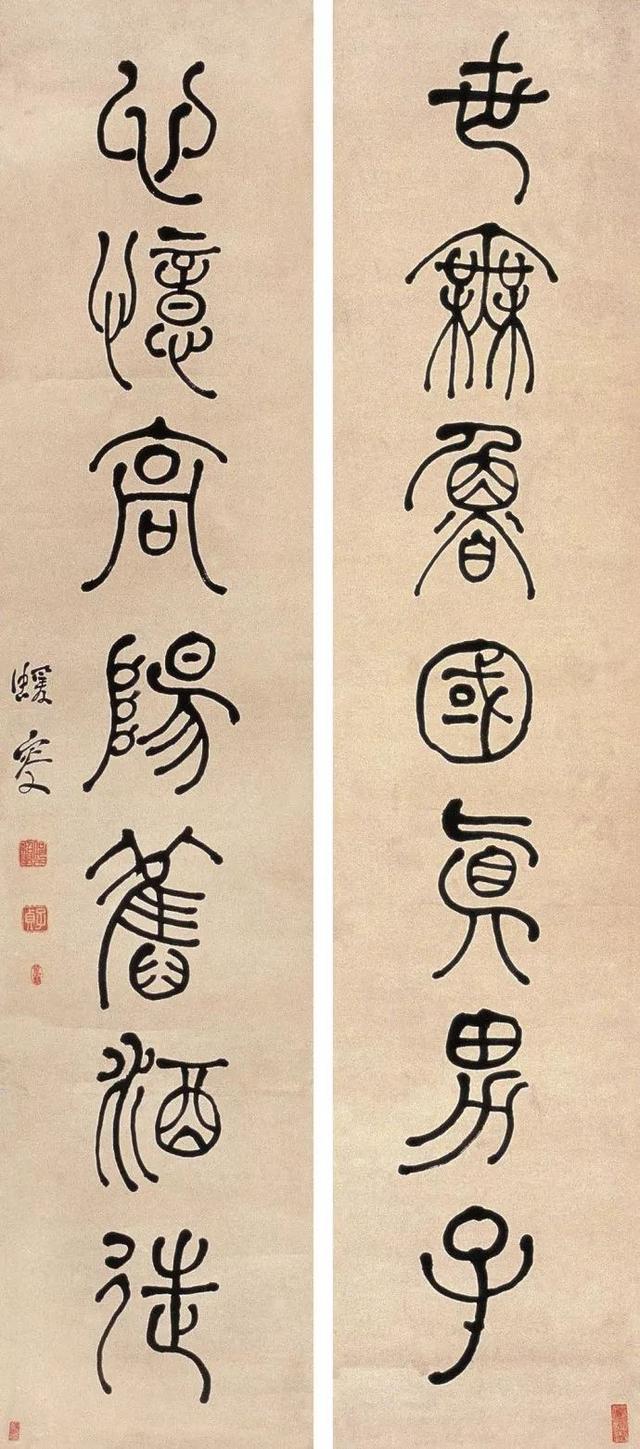 世無魯國真男子
心憶高陽舊酒徒
蝯叟